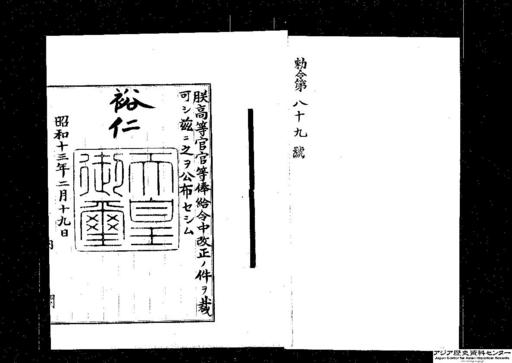 勅令第八十九號
朕高等官官等俸給令中改正ノ件ヲ裁
可シ茲ニ之ヲ公布セシム
裕仁
天皇
御璽
昭和十三年二月十九日
内
アジア歴史資料センター
Japan Center for Asian Historical Records